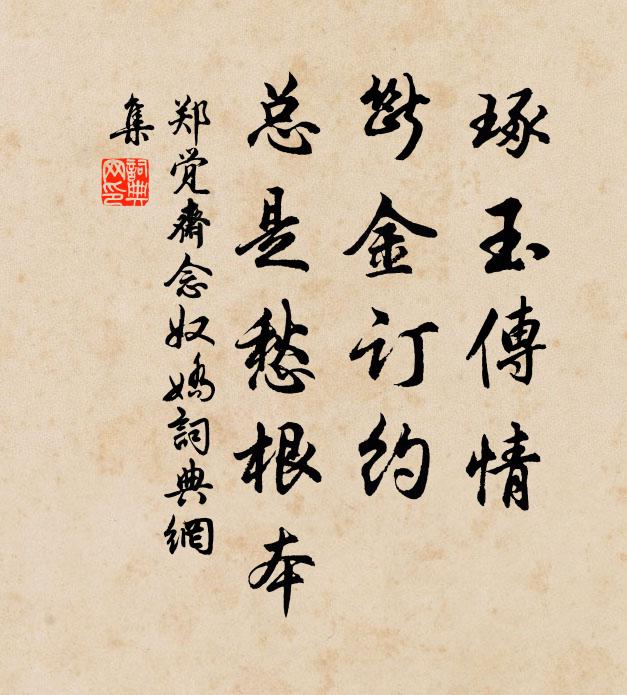 琢玉傳情
断金订约
总是愁根本
郑觉斋念奴娇詞典網
集
詞典
网印